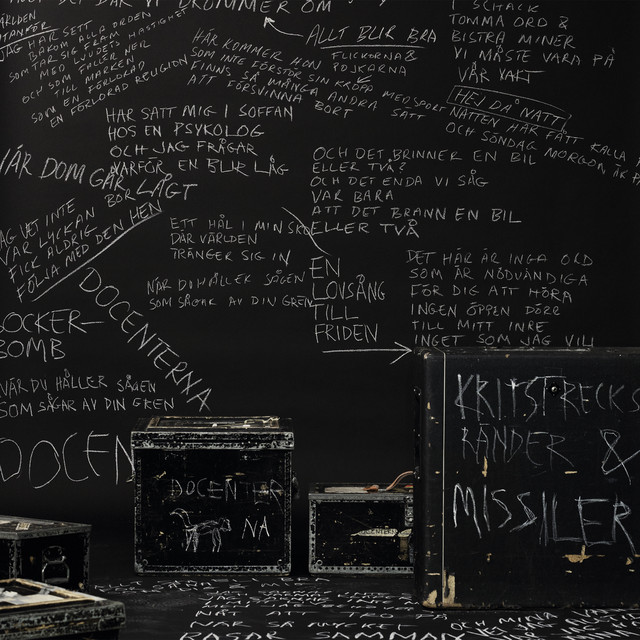 DRÖMMER OM
VÄRLDEN
UTANFÖR
JAG HAR SETT
BAKOM ALLA ORDEN
SOM TAR SIG FRAM
MED LJUDETS HASTIGHET
OCH SOM FALLER NER
TILL MARKEN
SOM EN FÖRLORAD
EN FÖRLORAD RELIGION
ALLT BLIR BRA
HÄR KOMMER HAN
FLICKORNA &
POJKORNA
SOM INTE FÖRSTÖR SIN KROPP MED SPORT
FINNS SÅ MÅNGA ANDRA SÄTT
ATT FÖRSVINNA BORT
I SCHACK
TOMMA ORD &
BISTRA MINER
VI MÅSTE VARA PÅ
VÅR VAKT
HEJ DÅ NATT
NATTEN HÄR FÅTT KALLA
OCH SÖNDAG MORGON ÄR
HAR SATT MIG I SOFFAN
HOS EN PSYKOLOG
OCH JAG FRÅGAR
VARFÖR EN BLIR LÅG
NÄR DOM GÅR
BOR LÅGT
OCH DET BRINNER EN BIL
ELLER TVÅ?
OCH DET ENDA VI SÅG
VAR BARA
ATT DET BRANN EN BIL
ELLER TVÅ
JAG VET INTE
VAR LYCKAN
FICK ALDRIG
FÖLJA MED DEN HEM
ETT HÅL I MIN
DÄR VÄRLDEN
TRÄNGER SIG IN
NÄR DU HÅLLER SÅGEN
SOM SÅGAR AV DIN GREN
EN
LOVSÅNG
TILL
FRIDEN
DET HÄR ÄR INGA ORD
SOM ÄR NÖDVÄNDIGA
FÖR DIG ATT HÖRA
INGEN ÖPPEN DÖRR
TILL MITT INRE
INGET SOM JAG VILL
DOCENTERNA
SOCKER-
BOMB
NÄR DU HÅLLER SÅGEN
SOM SÅGAR AV DIN GREN
DOCEN
DOCENTER
NA
KRITSTRECKS
RÄNDER &
MISSILER